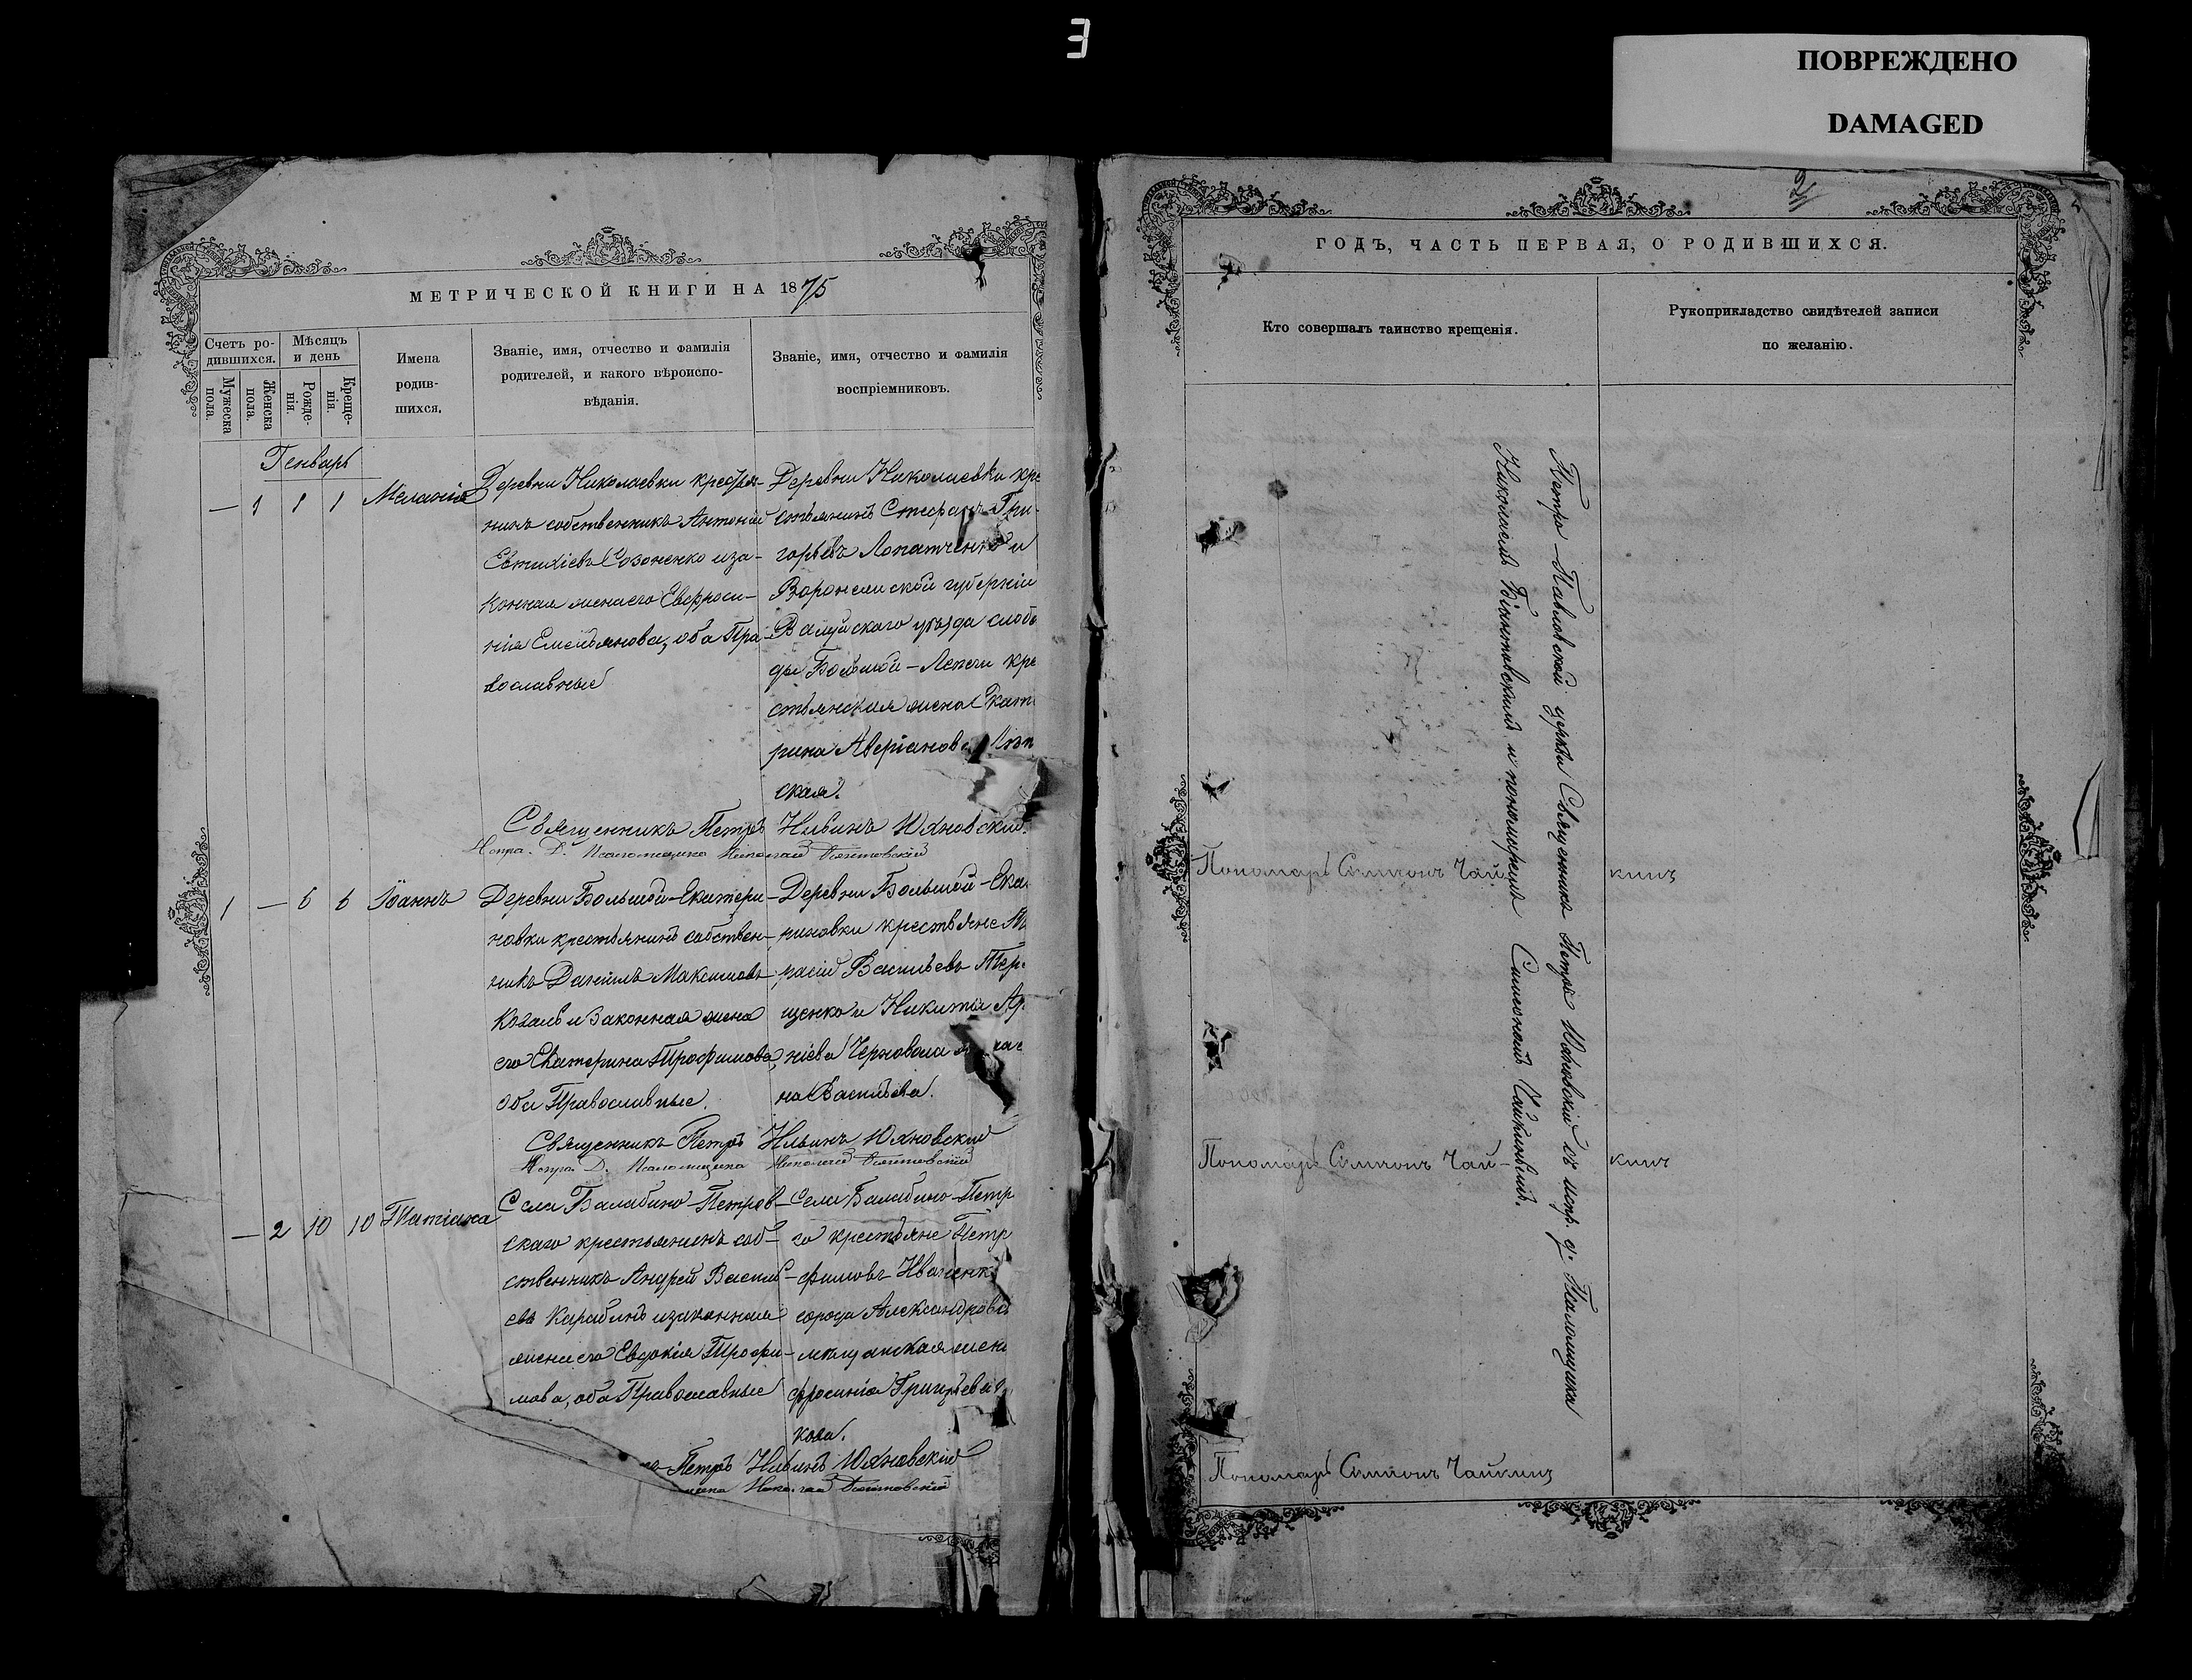 ПОВРЕЖДЕНО
DAMAGED
МЕТРИЧЕСКОЙ КНИГИ НА 1875
Счетъ ро-
дившихся.
Мѣсяцъ
и день
Мужеска
пола.
Женска
пола.
Рожде-
нія.
Креще-
нія.
Имена
родив-
шихся.
Званіе, имя, отчество и фамилія
родителей, и какого вѣроиспо-
вѣданія.
Званіе, имя, отчество и фамилія
воспріемниковъ.
Генварь
— 1 1 1 Меланія
Деревни Николаевки крестья-
нинъ собственникъ Антоній
Евтихіевъ Созоненко и за-
конная жена его Евфроси-
нія Емельянова, оба Пра-
вославные
Деревни Николаевки кре
стьянинъ Стефанъ Гри-
горьевъ Лопатченко и
Воронежской губерніи
Валуйскаго уѣзда слобо
ды Большой-Лепяги кре
стьянская жена Екате
рина Аверіанова
ская.
Священникъ Петръ Ильинъ Юхновскій
Испра. Д. Псаломщика Николай
1 — 6 6 Іоаннъ
Деревни Большой-Екатери-
новки крестьянинъ собствен-
никъ Даніилъ Максимовъ
Коваль и законная жена
его Екатерина Трофимова,
оба Православные.
Деревни Большой-Ека
риновки крестьяне
Васильевъ Тер
щенко и Никита
на Васильева.
Священникъ Петръ Ильинъ Юхновскій
Испра. Д. Псаломщика Николай
— 2 10 10 Татіана
Села Балабино-Петров-
скаго крестьянинъ соб-
ственникъ Андрей Василь-
евъ Карабинъ и законная
жена его Евдокія Трофи-
мова, оба Православные
Села Балабино-Петр
го крестьяне Петр
фимовъ Иваненко
города Александровс
мѣщанская жена
фросинія Григорьева
кова.
Петръ Ильинъ Юхновскій
щика Николай
2
ГОДЪ, ЧАСТЬ ПЕРВАЯ, О РОДИВШИХСЯ.
Кто совершалъ таинство крещенія.
Рукоприкладство свидѣтелей записи
по желанію.
Петро-Павловской церкви Священникъ Петръ Юхновскій съ испр. д. Псаломщика
Николаемъ и пономаремъ Симеономъ Чайкинымъ.
Пономарь Симеонъ Чайкинъ
Пономарь Симеонъ Чай-кинъ
Пономарь Симеонъ Чайкинъ